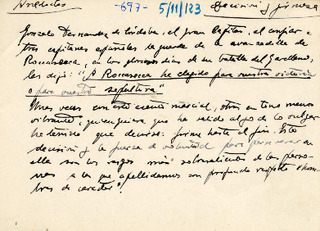 Anécdotas -677- 5/11/123 Decisión y firmeza
Gonzalo Fernandez de Córdoba, el gran Capitan, al confiar a
tres capitanes españoles la guarda de la avanzadilla de
Rocaseca, en los días de la batalla del Garellano,
les dijo: "A Rocaseca he elegido para nuestra victoria
o para vuestra sepultura".
Unas veces con este acento marcial, otras en tono menos
vibrante, quienquiera que ha salido algo de lo vulgar
ha tenido que decirse: firme hasta el fin. Esta
decisión y la fuerza de voluntad para perseverar en
ella son los rasgos más sobresalientes de las perso-
nas a las que apellidamos con profundo respeto "hom-
bres de carácter".